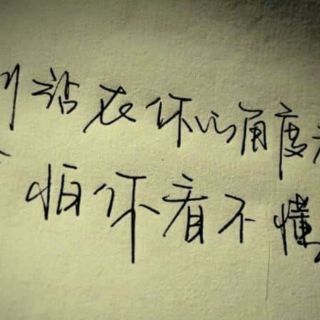 别站在你的角度看
怕你看不懂